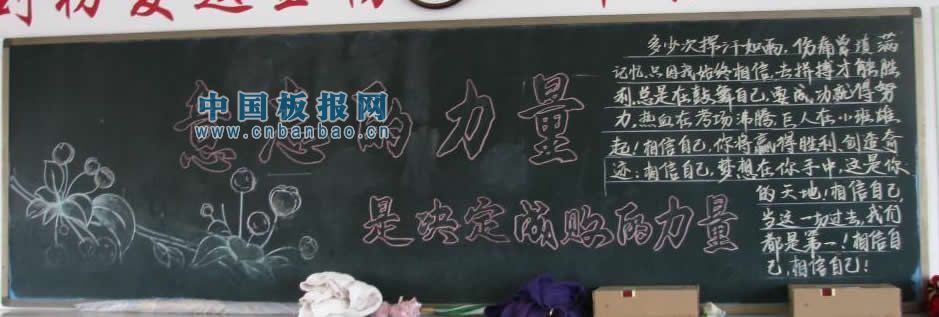 中国板报网
www.cnbanbao.cn
的力量
是决定成败的力量
多少次挥汗如雨,伤痛曾填满
记忆,只因我始终相信,去拼搏才能胜
利,总是在鼓舞自己,要成功就得努
力,热血在考场沸腾,巨人在小班雄
起!相信自己,你将赢得胜利,创造奇
迹;相信自己,梦想在你手中,这是你
的天地!相信自己,
当这一切过去,我们
都是第一!相信自
己,相信自己!